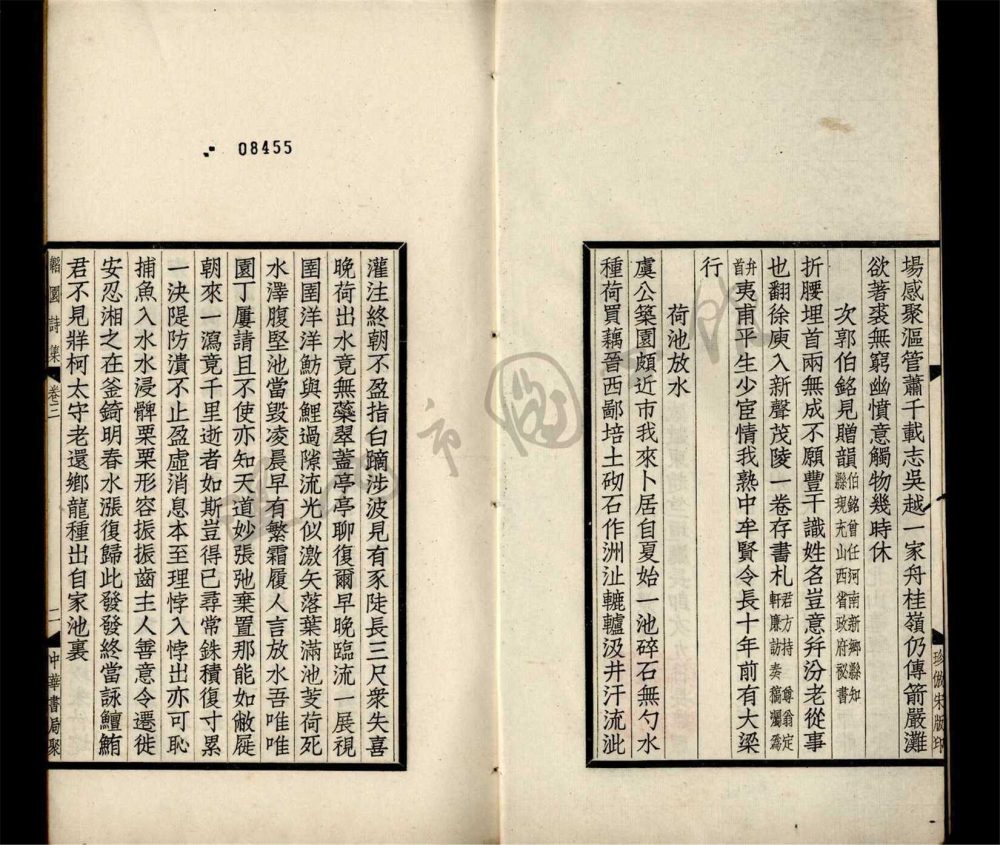 場感聚漚管蕭千載志吳越一家舟桂嶺仍傳箭嚴灘
欲著裘無窮幽憤意觸物幾時休
次郭伯銘見贈韻伯銘曾任河南新鄉縣知縣現充山西省政府祕書
折腰埋首兩無成不願豐干識姓名豈意幷汾老從事
也翻徐庾入新聲茂陵一卷存書札君方持尊翁定軒廉訪奏藁囑爲
弁首夷甫平生少宦情我熟中牟賢令長十年前有大梁
行
荷池放水
虞公築園頗近市我來卜居自夏始一池碎石無勺水
種荷買藕晉西鄙培土砌石作洲沚轆轤汲井汗流泚
珍倣宋版印
灌注終朝不盈指白蹢涉波見有豕陡長三尺衆失喜
晚荷出水竟無蘂翠蓋亭亭聊復爾早晚臨流一展視
圉圉洋洋魴與鯉過隙流光似激矢落葉滿池芰荷死
水澤腹堅池當毀凌晨早有繁霜履人言放水吾唯唯
園丁屢請且不使亦知天道妙張弛棄置那能如敝屣
朝來一瀉竟千里逝者如斯豈得已尋常銖積復寸累
一決隄防潰不止盈虛消息本至理悖入悖出亦可恥
捕魚入水水浸髀栗栗形容振振齒主人善意令遷徙
安忍湘之在釜錡明春水漲復歸此發發終當詠鱣鮪
君不見牂柯太守老還鄉龍種出自家池裏
園詩集
卷三
二
中華書局聚
08455
市